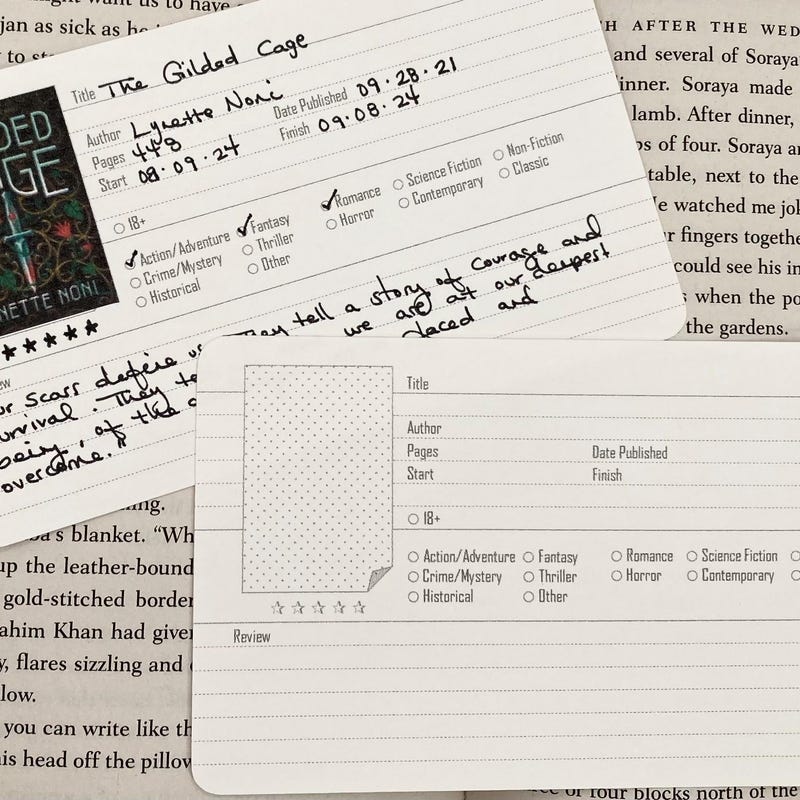 want us to have
jan as sick as he
to
H AFTER THE WED
and several of Soraya
inner. Soraya made
lamb. After dinner,
of four. Soraya
table, next to the
e watched me
fingers togethe
could see his in
when the po
the gardens.
DED
GE
NETTE NONI
Title The Gilded Cage
Author Lynette Noni
Pages 448 Date Published 09·28·21
Start 08·09·24 Finish 09·08·24
18+
Action/Adventure Fantasy Romance Science Fiction Non-Fiction
Crime/Mystery Thriller Horror Contemporary Classic
Historical Other
★★★★★
ew
ur scars define us They tell a story of courage and
urvival. They te we are at our deepest
being, of the faced and
overcome."
Title
Author
Pages Date Published
Start Finish
18+
Action/Adventure Fantasy Romance Science Fiction
Crime/Mystery Thriller Horror Contemporary
Historical Other
☆☆☆☆☆
Review
ing.
a's blanket. “Wh
up the leather-bound
gold-stitched border
ahim Khan had give
y, flares sizzling and
low.
you can write like th
his head off the pillow
of four blocks north of the